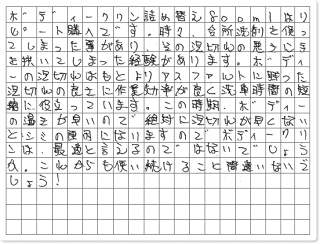 ボディークリン詰め替え800mlはリ
ピート購入です。時々、台所洗剤を使っ
てしまった事があり、その泡切れの悪さに手
を焼いてしまった経験があります。ボディ
ーの泡切れはもとよりアスファルトに残った
泡切れの良さに作業効率が良く洗車時間の短
縮に役立っています。この時期、ボディー
の温さが早いので絶対に泡切れが早くない
とシミの原因になりますのでボディークリ
ンは、最適と言えるのではないでしょう
か。これからも使い続けること間違いないで
しょう!